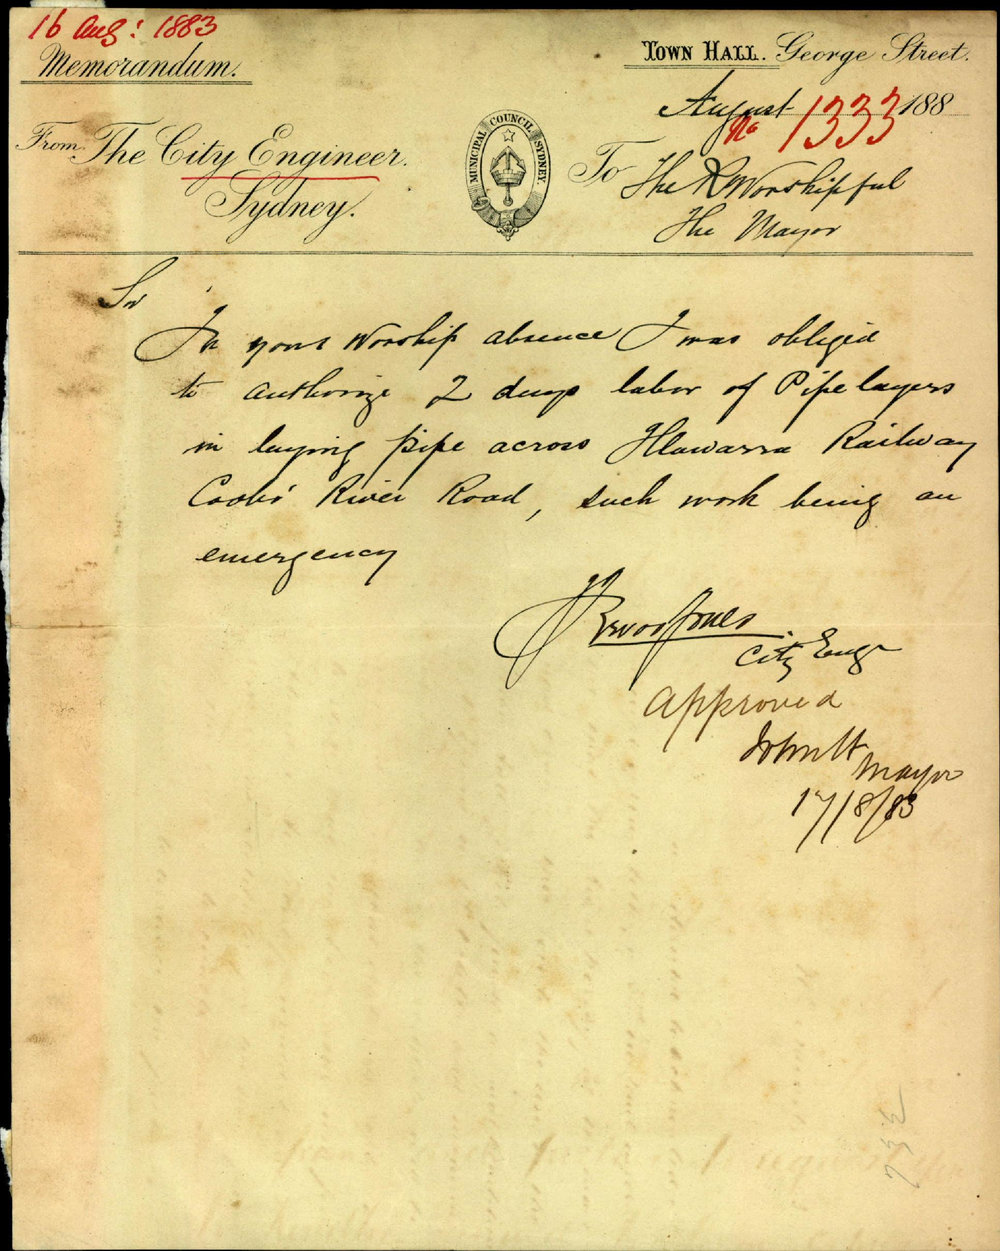 16 Aug: 1883
Memorandum.
TOWN HALL. George Street.
August 188
No 1333
From The City Engineer.
Sydney.
MUNICIPAL COUNCIL SYDNEY.
To The R Worshipful
The Mayor
Sir
In your Worship absence I was obliged
to authorize 2 days labor of Pipe layers
in laying pipe across Illawarra Railway
Cooks' River Road, such work being an
emergency
City Engr
Approved
Mayor
17/8/83